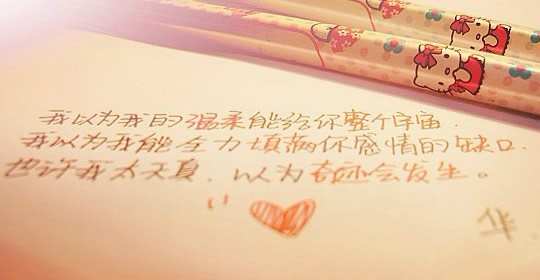 我以为我的温柔能给你整个宇宙.
我以为我能全力填满你感情的缺口.
也许我太天真.以为奇迹会发生。
华.